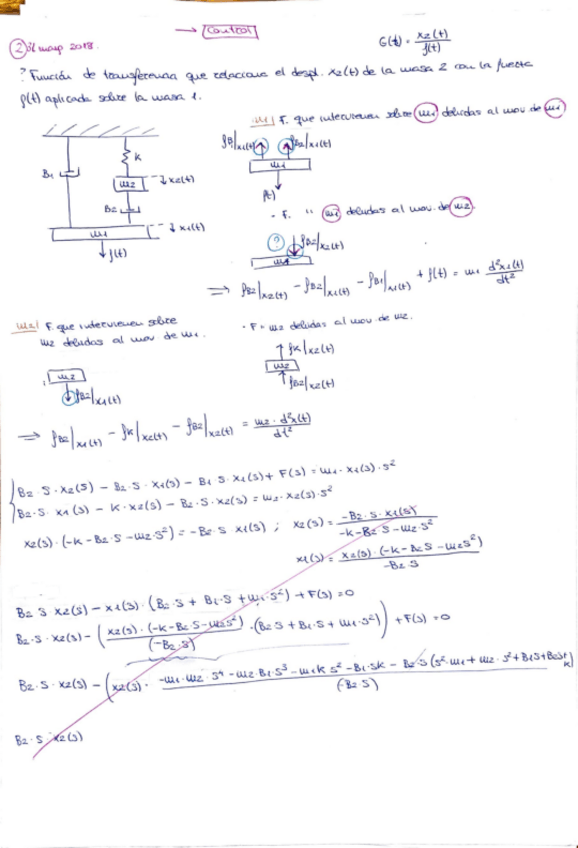 → Control
② 31 mayo 2018.
G(t) = x2(t)/f(t)
? Función de transferencia que relaciona el despl. x2(t) de la masa 2 con la fuerza
f(t) aplicada sobre la masa 1.
m1| F. que intervienen sobre m1 debidas al mov de m1
fB|x1(t) fB2|x1(t)
m1
f(t)
B1
K
m2 ↓x2(t)
B2
m1 ↓x1(t)
↓f(t)
- F. " m1 debidas al mov. de m2.
? fB2|x2(t)
m1
⇒ fB2|x2(t) - fB2|x1(t) - fB1|x1(t) + f(t) = m1 d²x1(t)/dt²
m2| F. que intervienen sobre
m2 debidas al mov de m1.
· F = m2 debidas al mov. de m2.
↑fK|x2(t)
m2
↑fB2|x2(t)
m2
↓fB2|x1(t)
⇒ fB2|x1(t) - fK|x2(t) - fB2|x2(t) = m2 · d²x(t)/dt²
B2 · S · x2(S) - B2 · S · x1(S) - B1 · S · x1(s) + F(s) = m1 · x1(s) · s²
B2 · S · x1(s) - K · x2(s) - B2 · S · x2(s) = m2 · x2(s) · s²
x2(s) · (-K - B2 · S - m2 · S²) = -B2 · S x1(s) ; x2(s) = -B2 · S · x1(s) / -K - B2 · S - m2 · S²
x1(s) = x2(s) · (-K - B2 S - m2 S²) / -B2 · S
B2 · S x2(s) - x1(s) · (B2 · S + B1 · S + m1 · S²) + F(s) = 0
B2 · S · x2(s) - ( x2(s) · (-K - B2 · S - m2 S²) / (-B2 · S) · (B2 S + B1 · S + m1 · S²) ) + F(s) = 0
B2 · S · x2(s) - ( x2(s) · -m1 · m2 · S⁴ - m2 · B1 · S³ - m1 K S² - B1 · S K - B2 · S (S² · m1 + m2 · S² + B1 S + B2 S + K) / (-B2 · S)
B2 · S · x2(s)